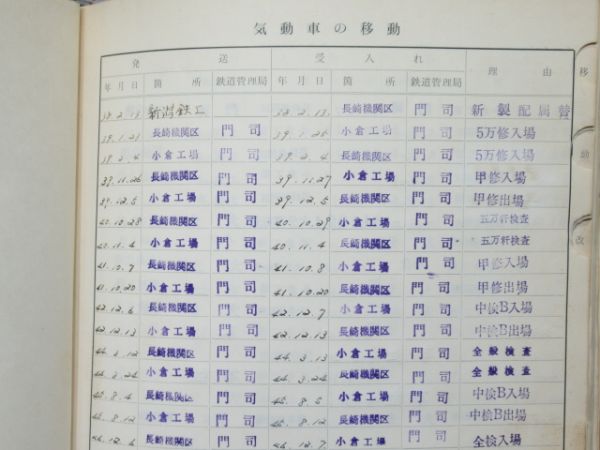 気動車の移動
発送 受入れ 理由 移
年月日 箇所 鉄道管理局 年月日 箇所 鉄道管理局 動
新潟鉄工 38.2.13. 長崎機関区 門司 新製配属替
39.1.21 長崎機関区 門司 39.1.25 小倉工場 門司 5万修入場
39.2.4 小倉工場 門司 39.2.4 長崎機関区 門司 5万修入場
39.11.26 長崎機関区 門司 39.11.27 小倉工場 門司 甲修入場
39.12.5 小倉工場 門司 39.12.5 長崎機関区 門司 甲修出場
40.10.28 長崎機関区 門司 40.10.29 小倉工場 門司 五万粁検査
40.11.4 小倉工場 門司 40.11.4 長崎機関区 門司 五万粁検査 改
41.10.7 長崎機関区 門司 41.10.8 小倉工場 門司 甲修入場
41.10.20 小倉工場 門司 41.10.20 長崎機関区 門司 甲修出場
42.12.6 長崎機関区 門司 42.12.7 小倉工場 門司 中検B入場
42.12.13 小倉工場 門司 42.12.13 長崎機関区 門司 中検B出場
44.3.12 長崎機関区 門司 44.3.13 小倉工場 門司 全般検査
44.3.24 小倉工場 門司 44.3.24 長崎機関区 門司 全般検査
長崎機関区 門司 小倉工場 門司 中検B入場
小倉工場 門司 長崎機関区 門司 中検B出場
長崎機関区 門司 小倉工場 門司 全検入場